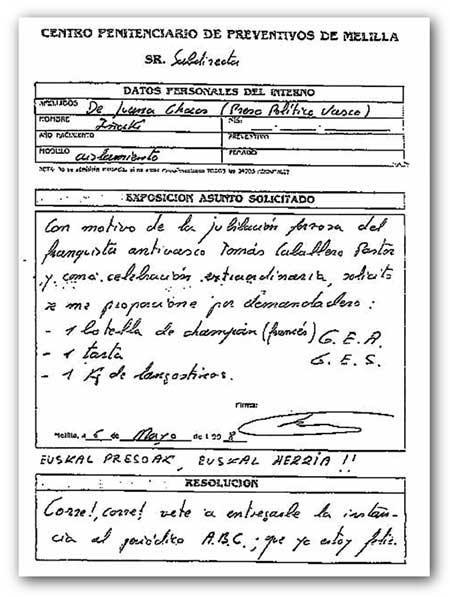 CENTRO PENITENCIARIO DE PREVENTIVOS DE MELILLA
SR. Subdirector
DATOS PERSONALES DEL INTERNO
APELLIDOS De Juana Chaos (Preso Político Vasco)
NOMBRE Iñaki NIS:
AÑO NACIMIENTO PREVENTIVO
MODULO aislamiento PENADO
EXPOSICION ASUNTO SOLICITADO
Con motivo de la jubilación forzosa del
franquista antivasco Tomás Caballero Pastor
y como celebración extraordinaria, solicito
se me proporcione por demandadero:
- 1 botella de champán (francés) G.E.A.
- 1 tarta G.E.S.
- 1 Kg de langostinos.
Firma:
Melilla, a 6 de Mayo de 1.99 8
EUSKAL PRESOAK, EUSKAL HERRIA !!
RESOLUCION
Corre!, corre! vete a entregarle la instan-
cia al periódico A.B.C.; que ya estoy feliz.